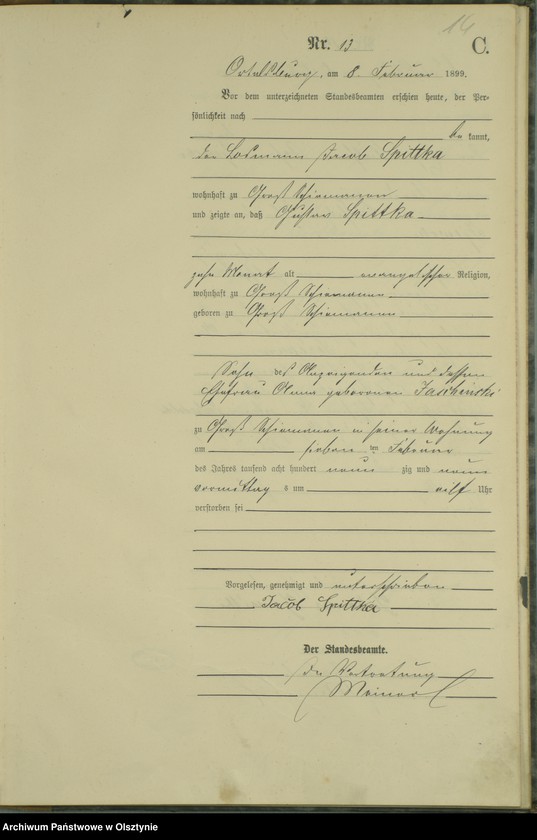 14
Nr. 13
C.
Ortelsburg, am 8. Februar 1899.
Vor dem unterzeichneten Standesbeamten erschien heute, der Per-
sönlichkeit nach
be kannt,
der Losmann Jacob Spittka
wohnhaft zu Groß Schiemanen
und zeigte an, daß Gustav Spittka
zehn Monat alt evangelischer Religion,
wohnhaft zu Groß Schiemanen
geboren zu Groß Schiemanen
Sohn des Anzeigenden und dessen
Ehefrau geborenen Jaschinski
zu Groß Schiemanen in seiner Wohnung
am sieben ten Februar
des Jahres tausend acht hundert neun zig und neun
vormittag s um elf Uhr
verstorben sei
Vorgelesen, genehmigt und unterschrieben
Jacob Spittka
Der Standesbeamte.
In Vertretung
Archiwum Państwowe w Olsztynie